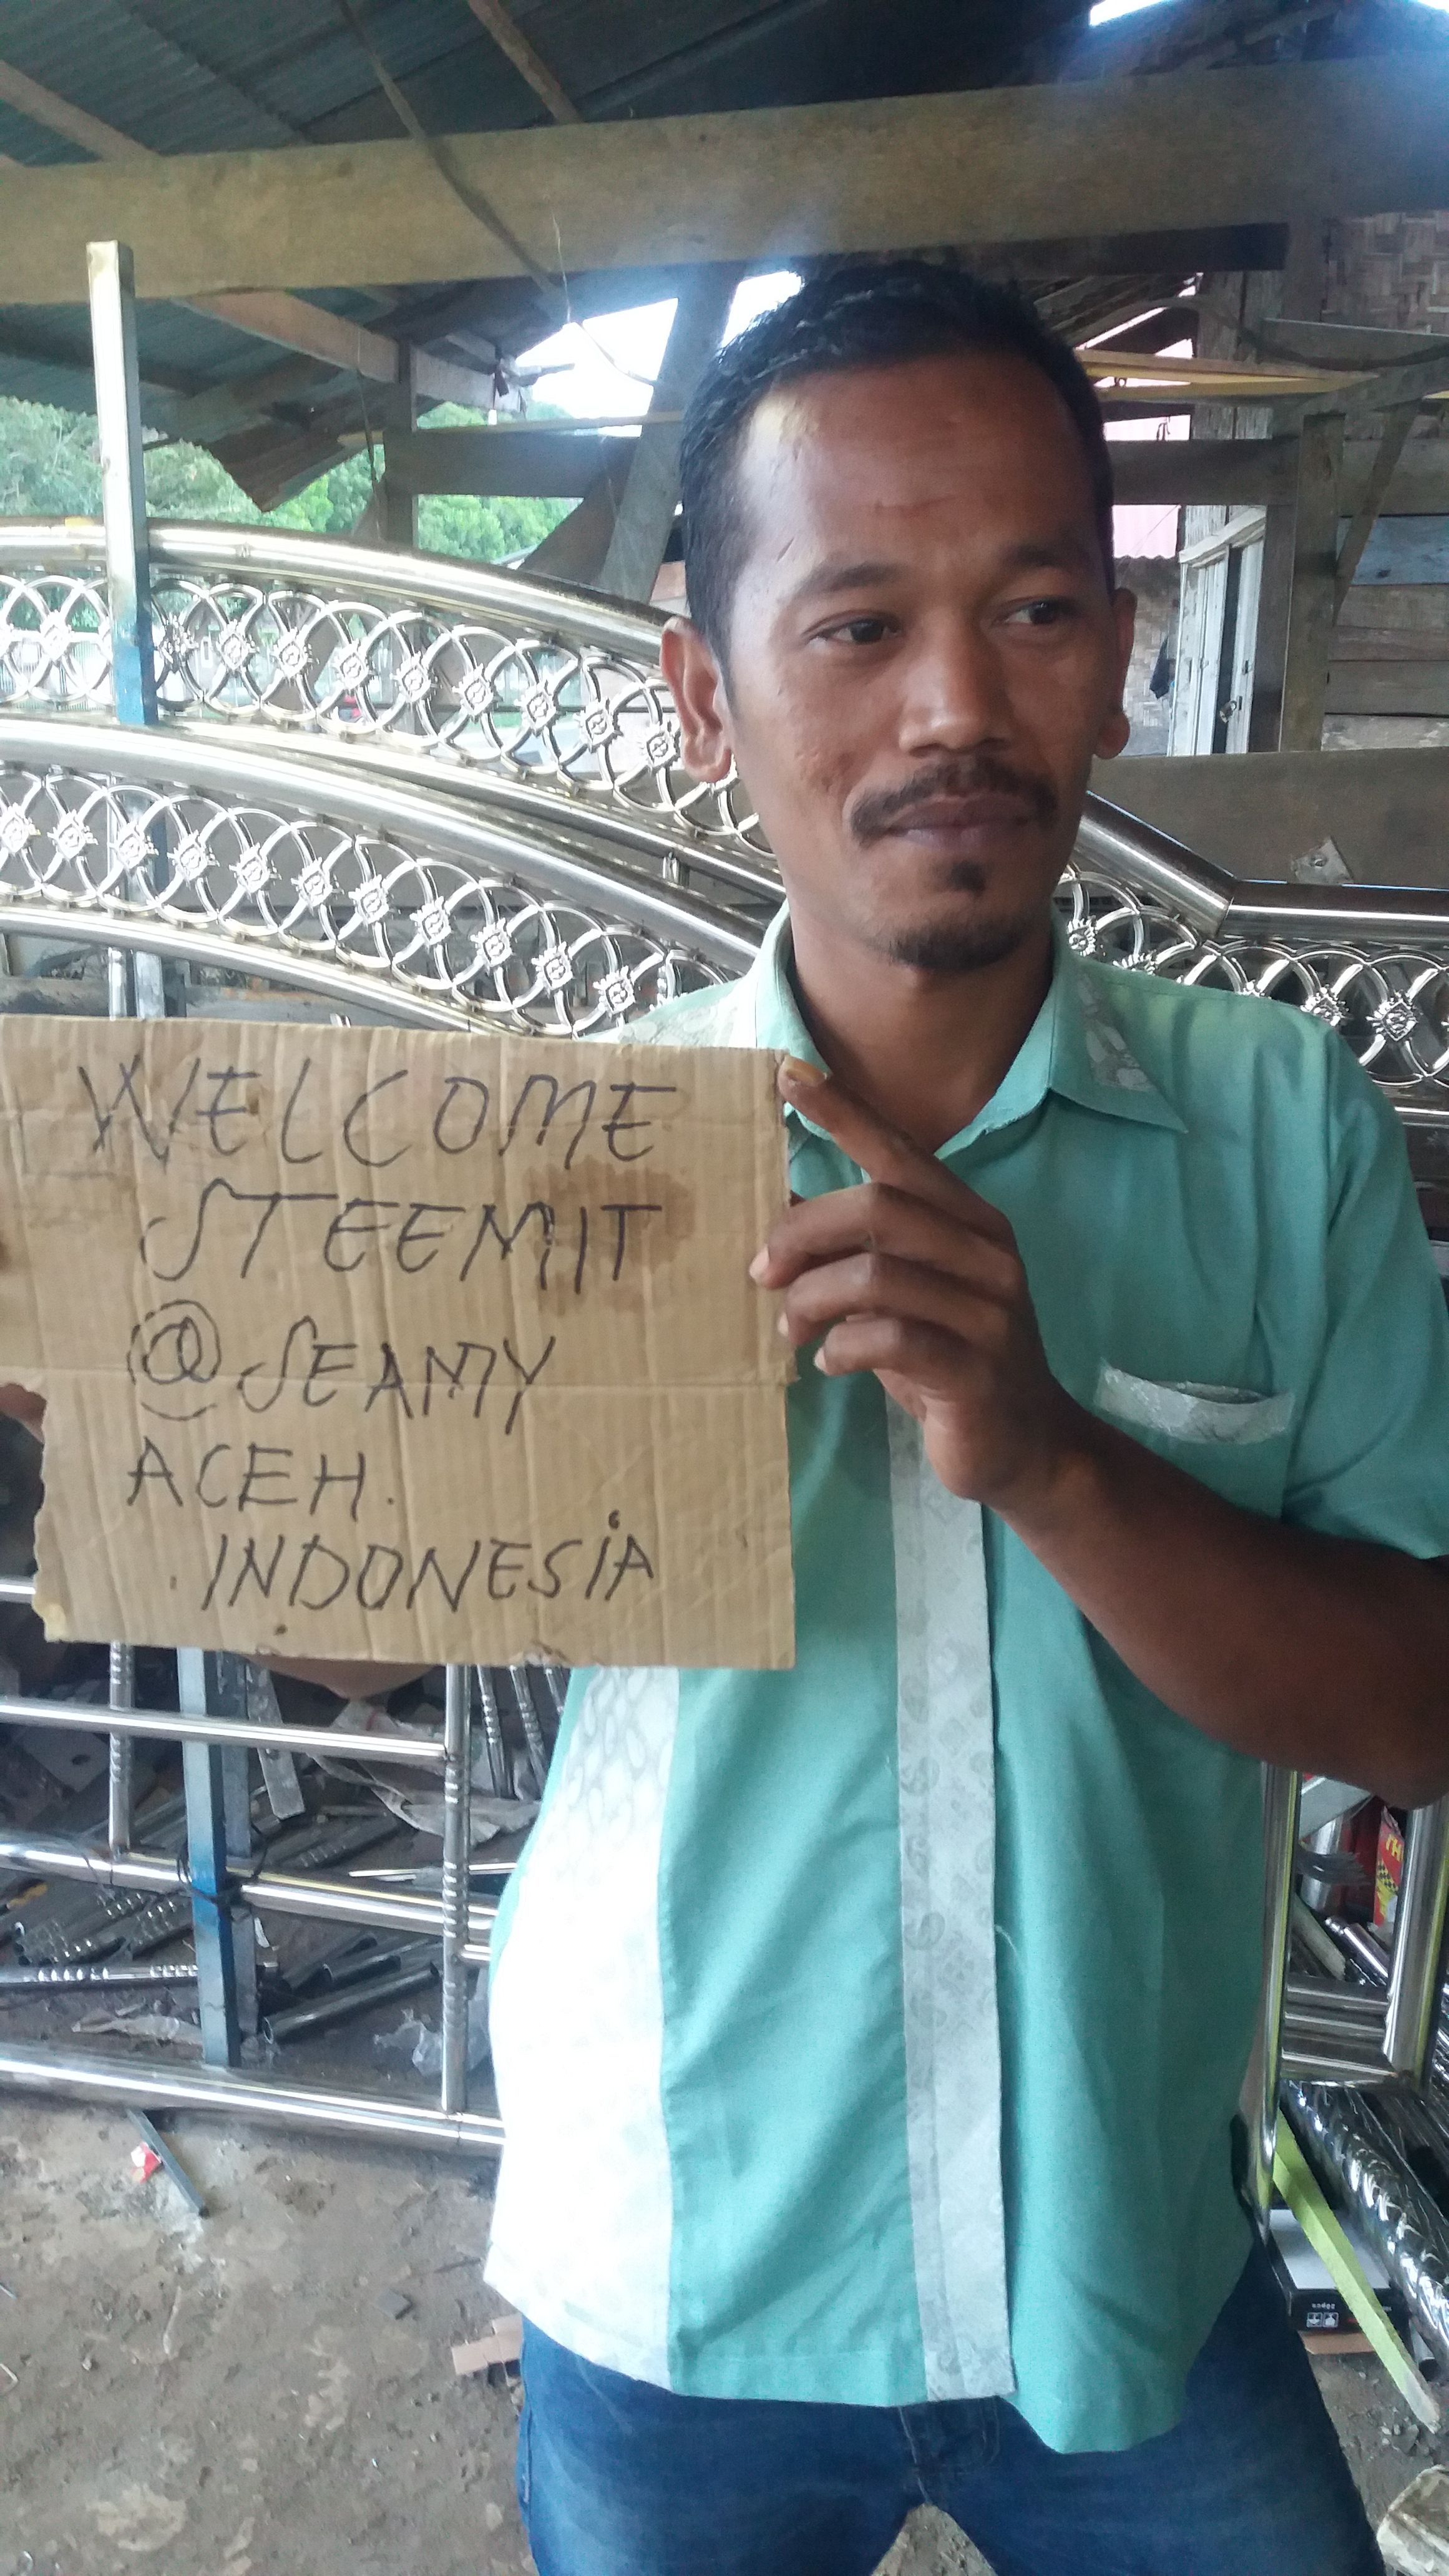 WELCOME
STEEMIT
@SEAMY
ACEH.
INDONESIA